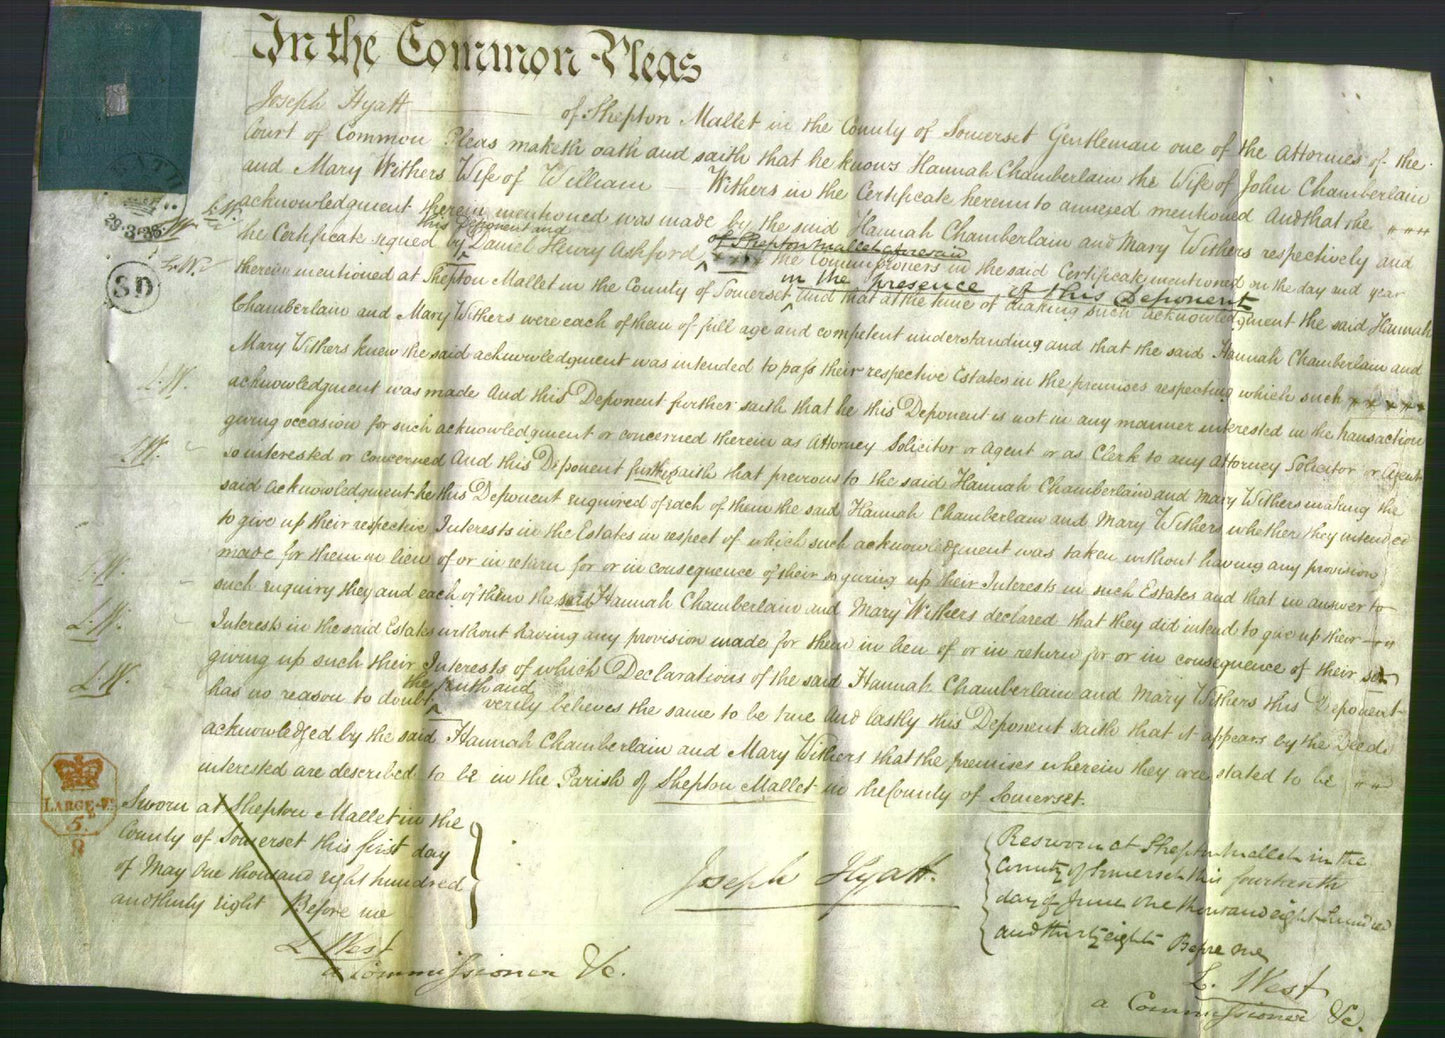 In the Common Pleas
Joseph Hyatt of Shepton Mallet in the County of Somerset Gentleman one of the Attornies of the
Court of Common Pleas maketh oath and saith that he knows Hannah Chamberlain the Wife of John Chamberlain
and Mary Withers Wife of William Withers in the Certificate hereunto annexed mentioned And that the
acknowledgment therein mentioned was made by the said Hannah Chamberlain and Mary Withers respectively and
this Deponent and
of Shepton Mallet aforesaid
the Certificate signed by Daniel Henry Ashford the Commissioners in the said Certificate mentioned on the day and year
in the presence of this Deponent
therein mentioned at Shepton Mallet in the County of Somerset, and that at the time of making such acknowledgment the said Hannah
Chamberlain and Mary Withers were each of them of full age and competent understanding and that the said Hannah Chamberlain and
Mary Withers knew the said acknowledgment was intended to pass their respective Estates in the premises respecting which such
acknowledgment was made And this Deponent further saith that he this Deponent is not in any manner interested in the transaction
giving occasion for such acknowledgment or concerned therein as Attorney Solicitor or Agent or as Clerk to any Attorney Solicitor or Agent
so interested or concerned And this Deponent further saith that previous to the said Hannah Chamberlain and Mary Withers making the
said acknowledgment he this Deponent enquired of each of them the said Hannah Chamberlain and Mary Withers whether they intended
to give up their respective Interests in the Estates in respect of which such acknowledgment was taken without having any provision
made for them in lieu of or in return for or in consequence of their so giving up their Interests in such Estates and that in answer to
such enquiry they and each of them the said Hannah Chamberlain and Mary Withers declared that they did intend to give up their
Interests in the said Estates without having any provision made for them in lieu of or in return for or in consequence of their so
giving up such their Interests of which Declarations of the said Hannah Chamberlain and Mary Withers this Deponent
the truth and
has no reason to doubt verily believes the same to be true And lastly this Deponent saith that it appears by the Deed
acknowledged by the said Hannah Chamberlain and Mary Withers that the premises wherein they are stated to be
interested are described to be in the Parish of Shepton Mallet in the County of Somerset.
Sworn at Shepton Mallet in the
County of Somerset this first day
of May One thousand eight hundred
and thirty eight Before me
L West
a Commissioner &c.
Joseph Hyatt.
Resworn at Shepton Mallet in the
County of Somerset this fourteenth
day of June One thousand eight hundred
and thirty eight Before me
L. West
a Commissioner &c.
BATH
29.3.38
SD
L.W.
L.W.
L.W.
L.W.
L.W.
L.W.
L.W.
LARGE-F.
5.